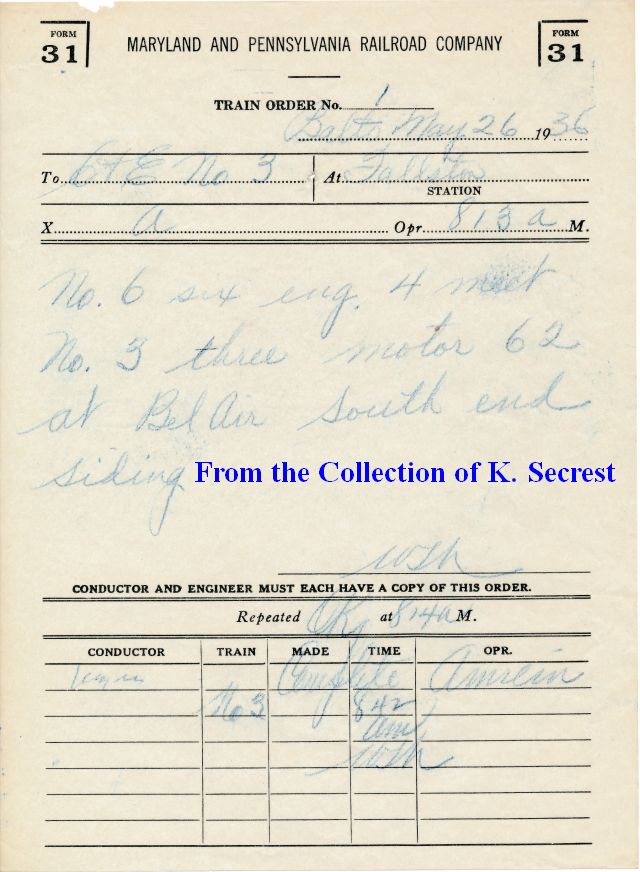 FORM
31
MARYLAND AND PENNSYLVANIA RAILROAD COMPANY
FORM
31
TRAIN ORDER No. 1
Balto May 26 1936
To C & E No 3 At Fallston
STATION
X A Opr. 813 a M.
No. 6 six eng. 4 meet
No. 3 three motor 62
at Bel Air south end
siding
From the Collection of K. Secrest
CONDUCTOR AND ENGINEER MUST EACH HAVE A COPY OF THIS ORDER.
Repeated at 814a M.
CONDUCTOR TRAIN MADE TIME OPR.
Complete Amrein
No 3 842
am